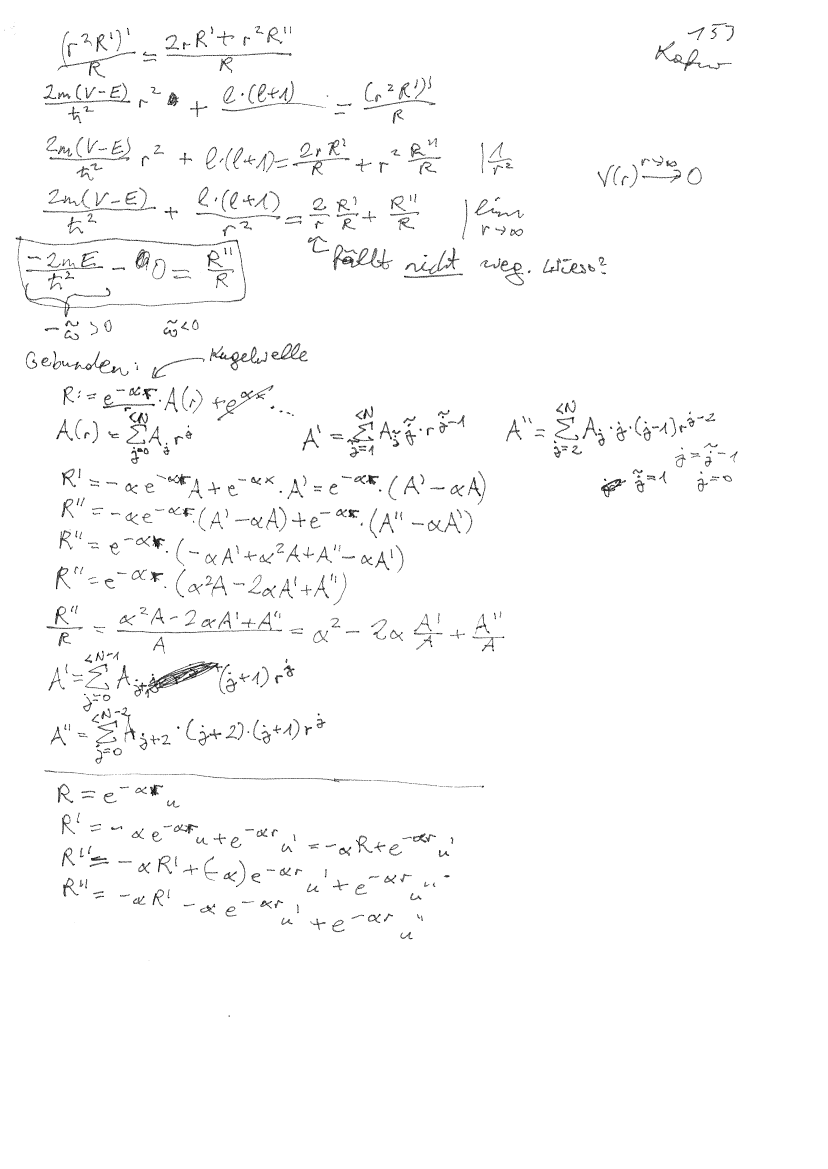 153
(r²R')'/R = (2rR' + r²R'')/R
2m(V-E)/ħ² r² + l·(l+1) = (r²R')'/R
2m(V-E)/ħ² r² + l·(l+1) = 2rR'/R + r² R''/R | 1/r²
V(r) →(r→∞) 0
2m(V-E)/ħ² + l·(l+1)/r² = 2/r R'/R + R''/R | lim r→∞
-2mE/ħ² - 0 = R''/R
↑ fällt nicht weg. Wieso?
-ω̃ > 0 ω̃ < 0
Gebunden: ← Kugelwelle
R := e^(-αr)/r · A(r) + e^(αx) ...
A(r) = Σ_(j=0)^(<N) A_j r^j
A' = Σ_(j̃=1)^(<N) A_j̃ j̃ · r^(j̃-1)
A'' = Σ_(j=2)^(<N) A_j · j · (j-1) r^(j-2)
j = j̃-1
j̃=1 j=0
R' = -αe^(-αr) A + e^(-αx) · A' = e^(-αr) · (A' - αA)
R'' = -αe^(-αr) · (A' - αA) + e^(-αr) · (A'' - αA')
R'' = e^(-αr) · (-αA' + α²A + A'' - αA')
R'' = e^(-αr) · (α²A - 2αA' + A'')
R''/R = (α²A - 2αA' + A'')/A = α² - 2α A'/A + A''/A
A' = Σ_(j=0)^(<N-1) A_(j+1) (j+1) r^j
A'' = Σ_(j=0)^(<N-2) A_(j+2) · (j+2) · (j+1) r^j
R = e^(-αr) u
R' = -αe^(-αr) u + e^(-αr) u' = -αR + e^(-αr) u'
R'' = -αR' + (-α) e^(-αr) u' + e^(-αr) u''
R'' = -αR' - αe^(-αr) u' + e^(-αr) u''